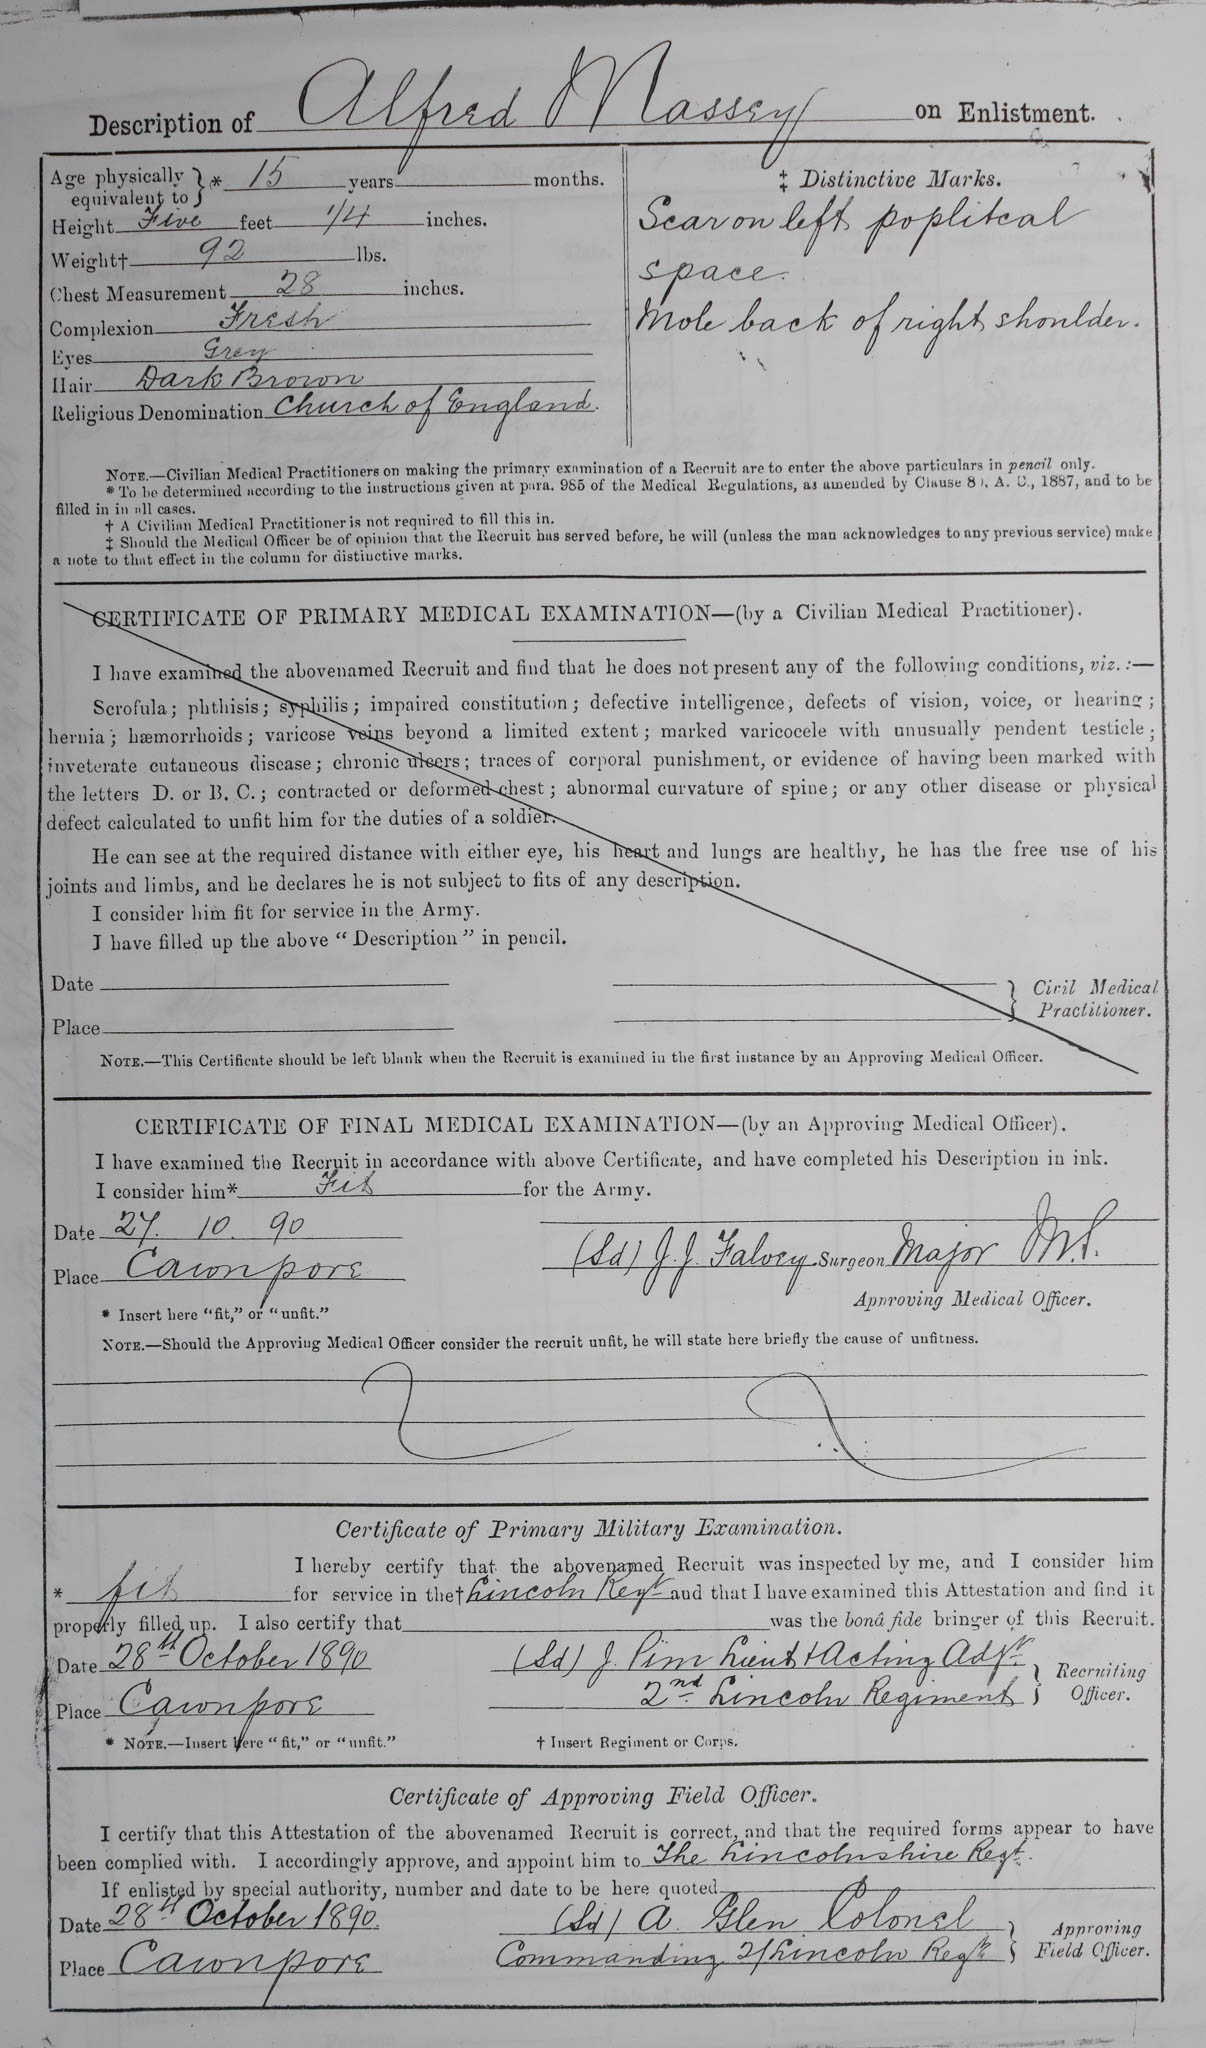 Description of Alfred Massey on Enlistment.
Age physically equivalent to } * 15 years months.
Height Five feet 1/4 inches.
Weight† 92 lbs.
Chest Measurement 28 inches.
Complexion Fresh
Eyes Grey
Hair Dark Brown
Religious Denomination Church of England.
‡ Distinctive Marks.
Scar on left popliteal
space.
Mole back of right shoulder.
NOTE.—Civilian Medical Practitioners on making the primary examination of a Recruit are to enter the above particulars in pencil only.
* To be determined according to the instructions given at para. 985 of the Medical Regulations, as amended by Clause 80, A. C., 1887, and to be
filled in in all cases.
† A Civilian Medical Practitioner is not required to fill this in.
‡ Should the Medical Officer be of opinion that the Recruit has served before, he will (unless the man acknowledges to any previous service) make
a note to that effect in the column for distinctive marks.
CERTIFICATE OF PRIMARY MEDICAL EXAMINATION—(by a Civilian Medical Practitioner).
I have examined the abovenamed Recruit and find that he does not present any of the following conditions, viz.:—
Scrofula; phthisis; syphilis; impaired constitution; defective intelligence, defects of vision, voice, or hearing;
hernia; hæmorrhoids; varicose veins beyond a limited extent; marked varicocele with unusually pendent testicle;
inveterate cutaneous disease; chronic ulcers; traces of corporal punishment, or evidence of having been marked with
the letters D. or B. C.; contracted or deformed chest; abnormal curvature of spine; or any other disease or physical
defect calculated to unfit him for the duties of a soldier.
He can see at the required distance with either eye, his heart and lungs are healthy, he has the free use of his
joints and limbs, and he declares he is not subject to fits of any description.
I consider him fit for service in the Army.
I have filled up the above "Description" in pencil.
Date
Place
} Civil Medical
Practitioner.
NOTE.—This Certificate should be left blank when the Recruit is examined in the first instance by an Approving Medical Officer.
CERTIFICATE OF FINAL MEDICAL EXAMINATION—(by an Approving Medical Officer).
I have examined the Recruit in accordance with above Certificate, and have completed his Description in ink.
I consider him* Fit for the Army.
Date 27. 10. 90
Place Cawnpore
(Sd) J. J. Falvey Surgeon Major M.S.
Approving Medical Officer.
* Insert here "fit," or "unfit."
NOTE.—Should the Approving Medical Officer consider the recruit unfit, he will state here briefly the cause of unfitness.
Certificate of Primary Military Examination.
I hereby certify that the abovenamed Recruit was inspected by me, and I consider him
* fit for service in the† Lincoln Regt and that I have examined this Attestation and find it
properly filled up. I also certify that was the bonâ fide bringer of this Recruit.
Date 28th October 1890 (Sd) J. Pim Lieut & Acting Adjt
Place Cawnpore 2nd Lincoln Regiment } Recruiting Officer.
* NOTE.—Insert here "fit," or "unfit." † Insert Regiment or Corps.
Certificate of Approving Field Officer.
I certify that this Attestation of the abovenamed Recruit is correct, and that the required forms appear to have
been complied with. I accordingly approve, and appoint him to The Lincolnshire Regt.
If enlisted by special authority, number and date to be here quoted
Date 28th October 1890. (Sd) A. Glen Colonel
Place Cawnpore Commanding 2/Lincoln Regt } Approving Field Officer.